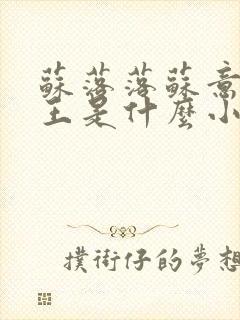 蘇落落蘇意
主是什麼小
撲街仔的夢想